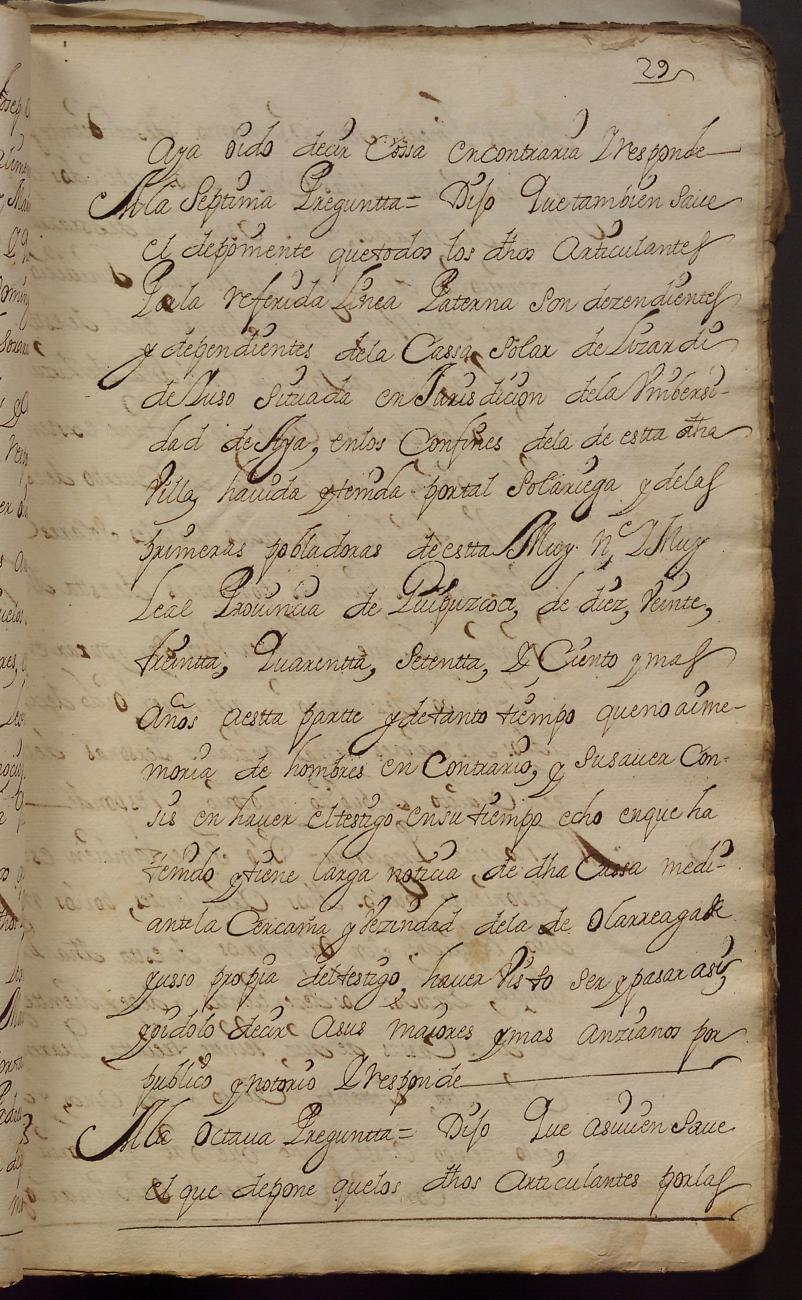 29
Aya oido decir Cossa encontrario Y responde
A la Septima Pregunta = Dijo Que tambien saue
el deponiente que todos los dhos Articulantes
Por la referida Linea Paterna son dezendientes
y dependientes de la Cassa solar de Lizardi
de Yuso situada en Jurisdicion de la Vniversi-
dad de Aya, en los Confines de la de estta dha
Villa, hauida y tenida por tal solariega y de las
primeras pobladoras de estta Muy N.e Y Muy
Leal Prouincia de Guipuzcoa, de diez, Veinte,
treintta, Quarentta, Setentta, Y Ciento y mas
años a estta partte y de tanto tiempo que no ai me-
moria de hombres en Contrario, y su sauer Con-
sis en hauer el testigo en su tiempo echo en que ha
tenido y tiene larga noticia de dha Cassa medi-
ante la Cercania y Vezindad de la de Olarreaga de
yusso propia del testigo, hauer Visto ser y pasar asi,
y oidolo decir a sus maiores y mas anzianos por
publico y notorio Y responde
A la Octaua Pregunta = Dijo Que asi uien saue
el que depone que los dhos Articulantes por las